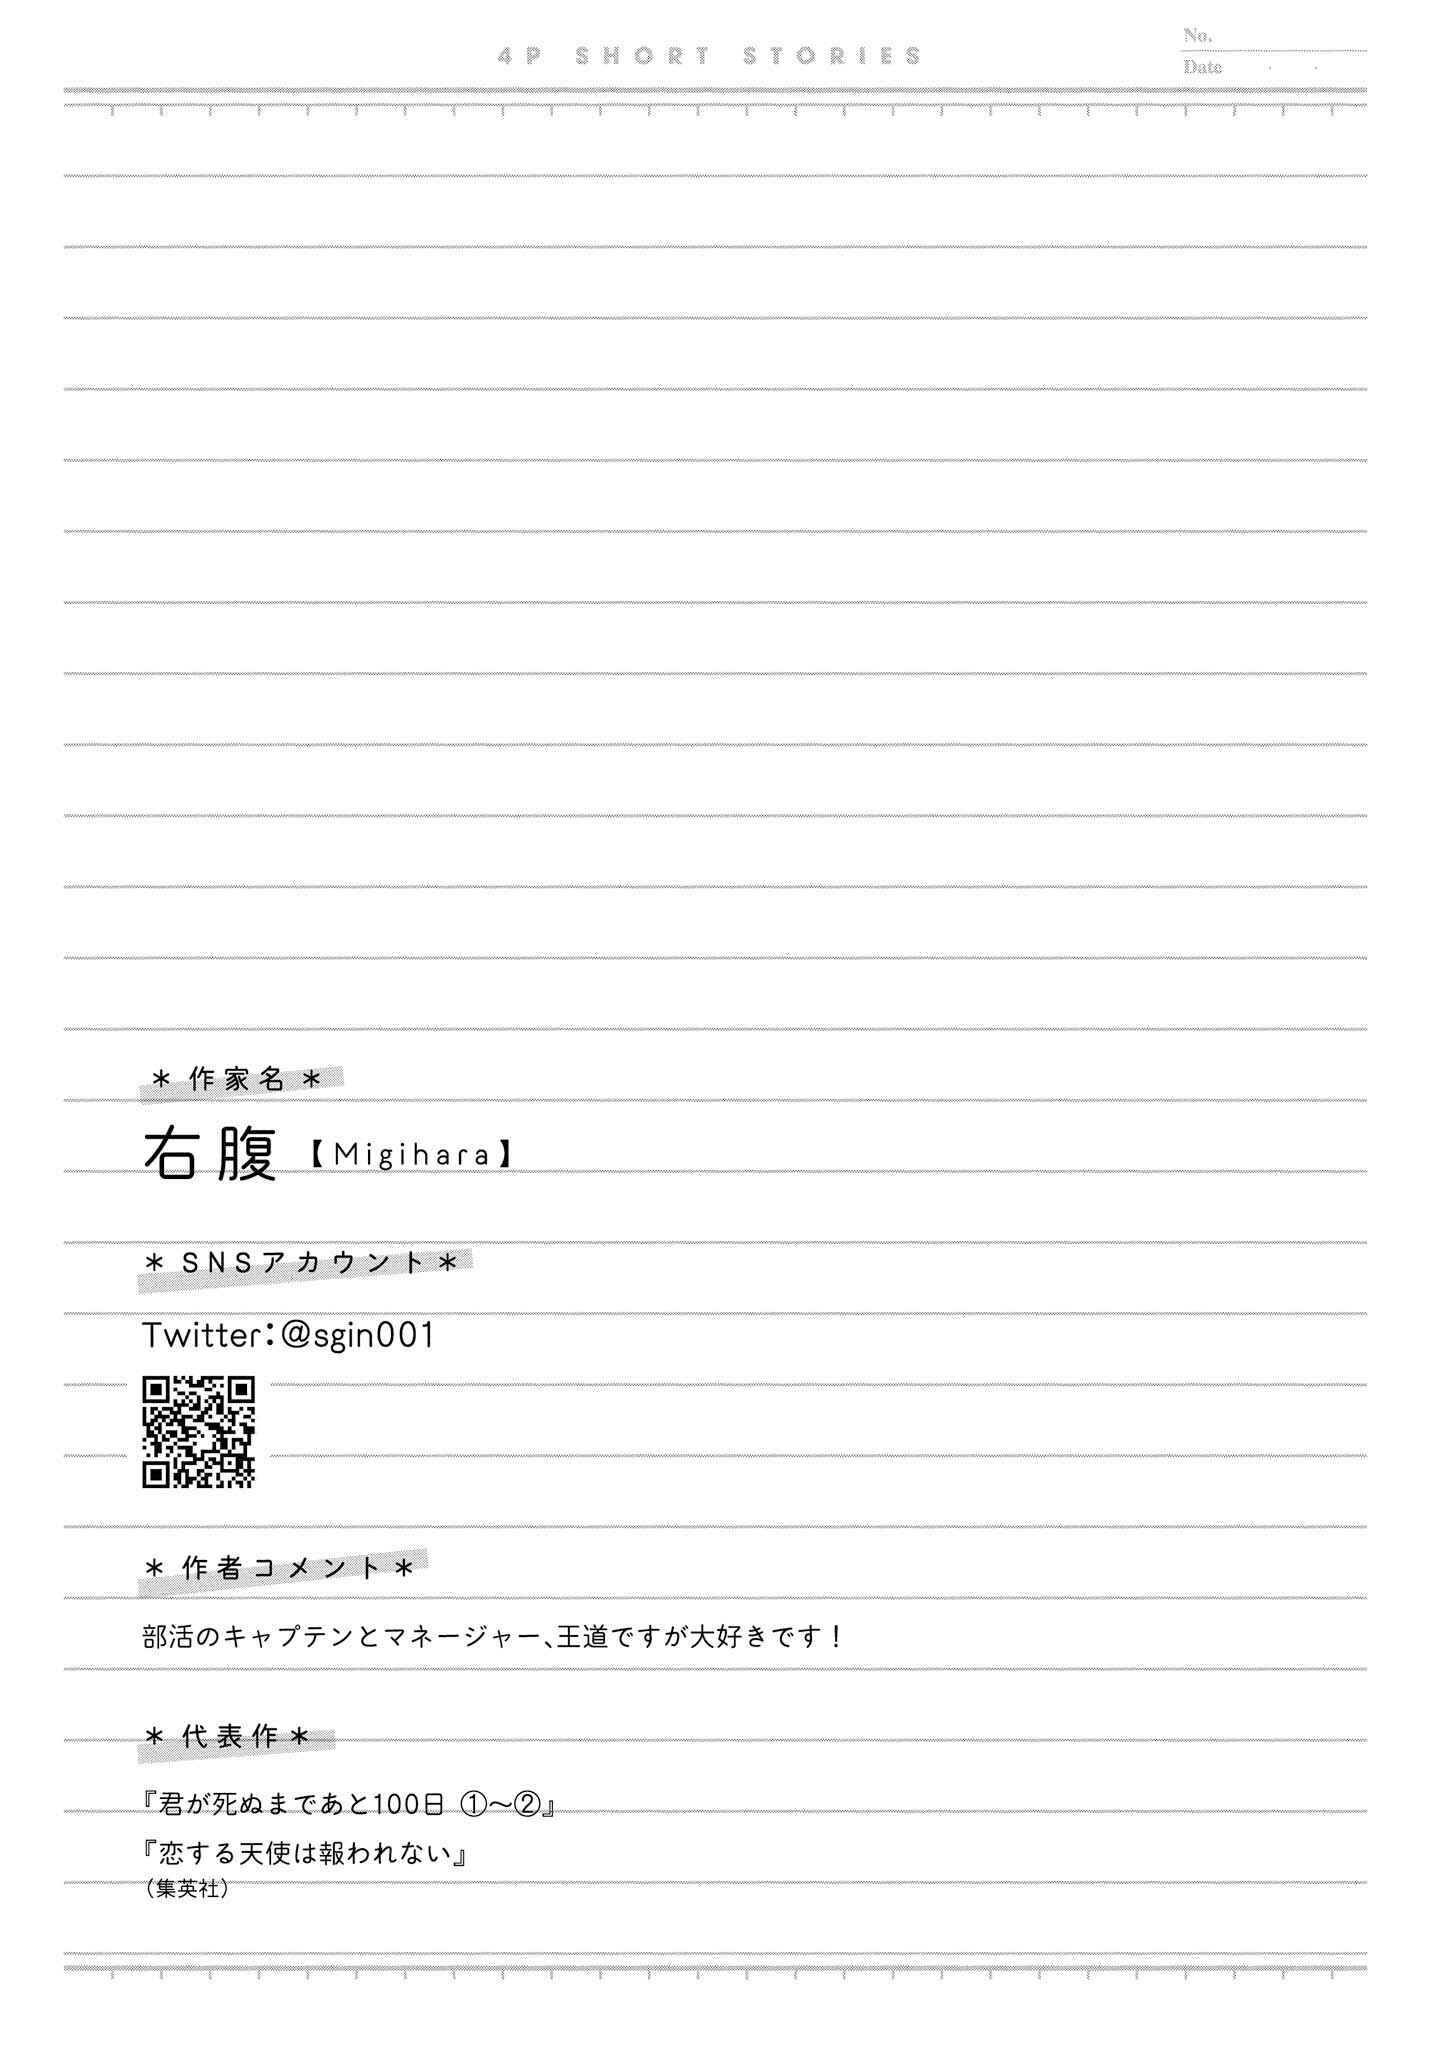 4P SHORT STORIES
No.
Date . .
＊ 作家名 ＊
右腹 【Migihara】
＊ SNSアカウント ＊
Twitter：@sgin001
＊ 作者コメント ＊
部活のキャプテンとマネージャー、王道ですが大好きです！
＊ 代表作 ＊
『君が死ぬまであと100日 ①～②』
『恋する天使は報われない』
（集英社）